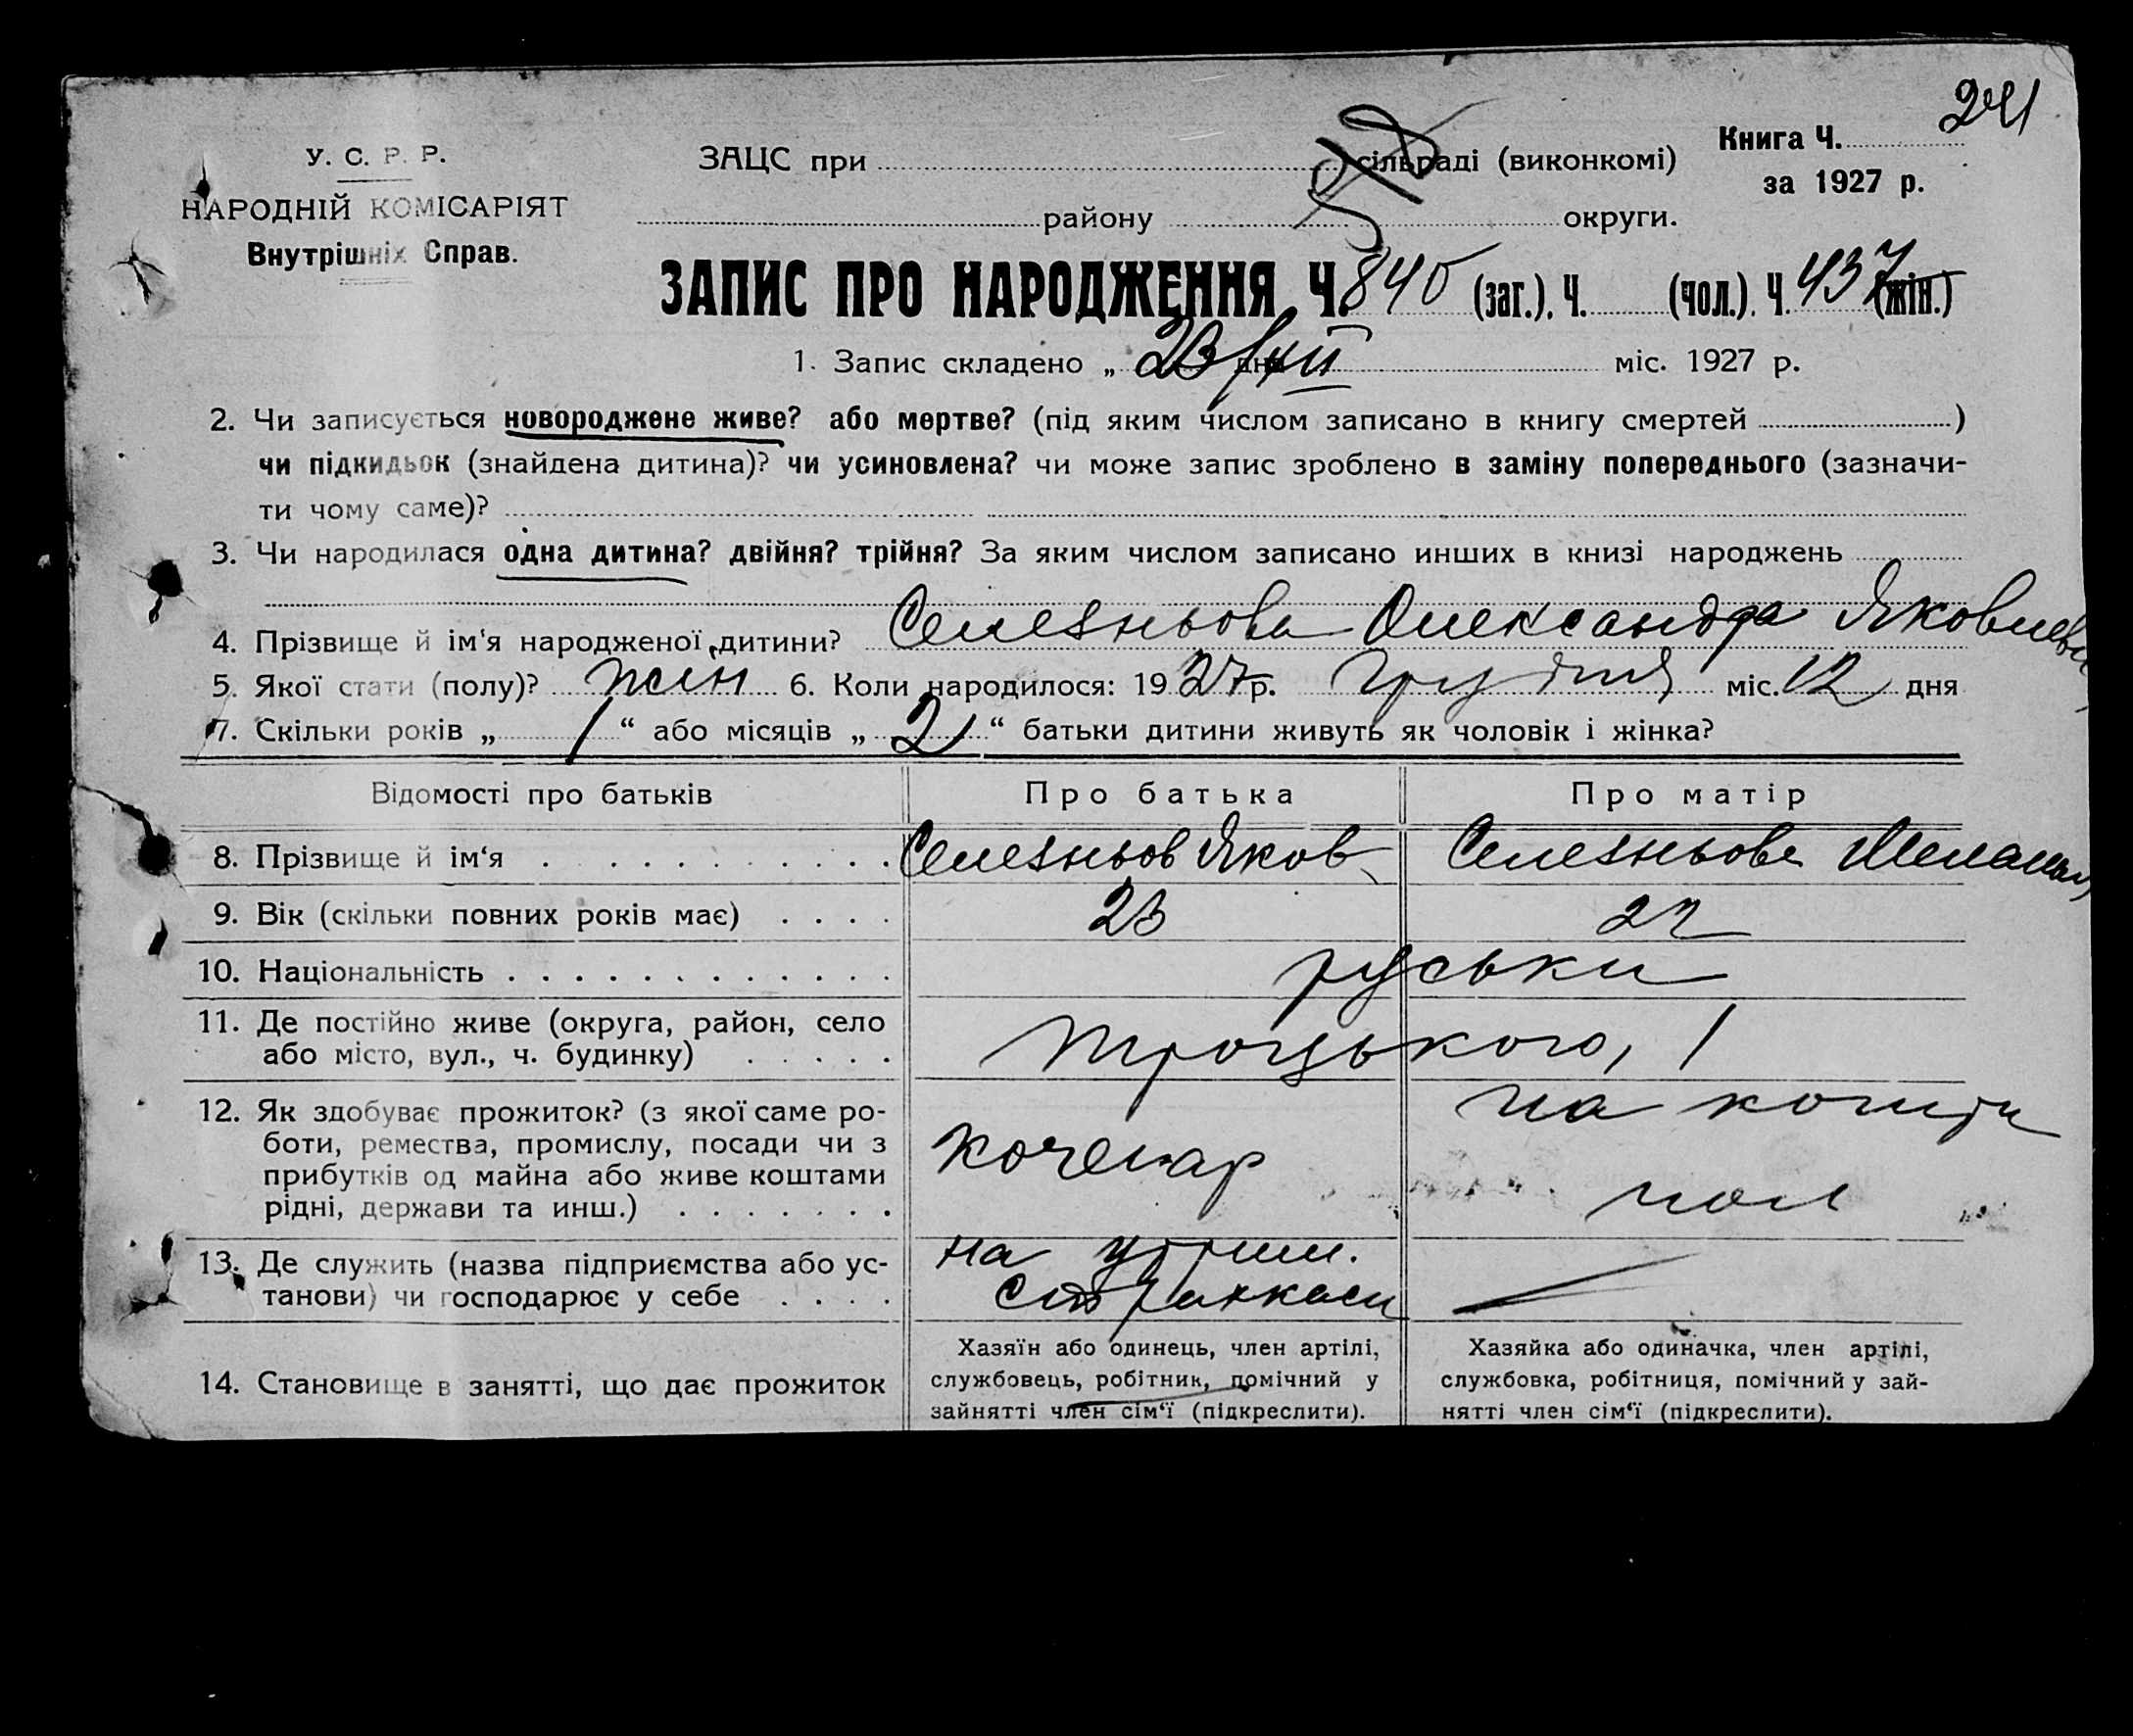 241
У. С. Р. Р.
НАРОДНІЙ КОМІСАРІЯТ
Внутрішніх Справ.
ЗАЦС при сільраді (виконкомі)
району округи.
Книга Ч.
за 1927 р.
ЗАПИС ПРО НАРОДЖЕННЯ Ч. 840 (заг.). Ч. (чол.). Ч. 437 (жін.)
1. Запис складено „ 23/XII дня міс. 1927 р.
2. Чи записується новороджене живе? або мертве? (під яким числом записано в книгу смертей )
чи підкидьок (знайдена дитина)? чи усиновлена? чи може запис зроблено в заміну попереднього (зазначи-
ти чому саме)?
3. Чи народилася одна дитина? двійня? трійня? За яким числом записано инших в книзі народжень
4. Прізвище й ім'я народженої дитини? Селезньова Олександра Яковлевна
5. Якої стати (полу)? жін 6. Коли народилося: 1927 р. грудня міс. 12 дня
7. Скільки років „ 1 “ або місяців „ 2 “ батьки дитини живуть як чоловік і жінка?
Відомості про батьків Про батька Про матір
8. Прізвище й ім‘я Селезньов Яков Селезньова
9. Вік (скільки повних років має) 23 22
10. Національність руськи
11. Де постійно живе (округа, район, село
або місто, вул., ч. будинку) Троцького, 1
12. Як здобуває прожиток? (з якої саме ро-
боти, ремества, промислу, посади чи з
прибутків од майна або живе коштами
рідні, держави та инш.) кочегар на кошти чол
13. Де служить (назва підприємства або ус-
танови) чи господарює у себе на утрим. страхкаси
14. Становище в занятті, що дає прожиток
Хазяїн або одинець, член артілі,
службовець, робітник, помічний у
зайнятті член сім‘ї (підкреслити).
Хазяйка або одиначка, член артілі,
службовка, робітниця, помічний у зай-
нятті член сім‘ї (підкреслити).